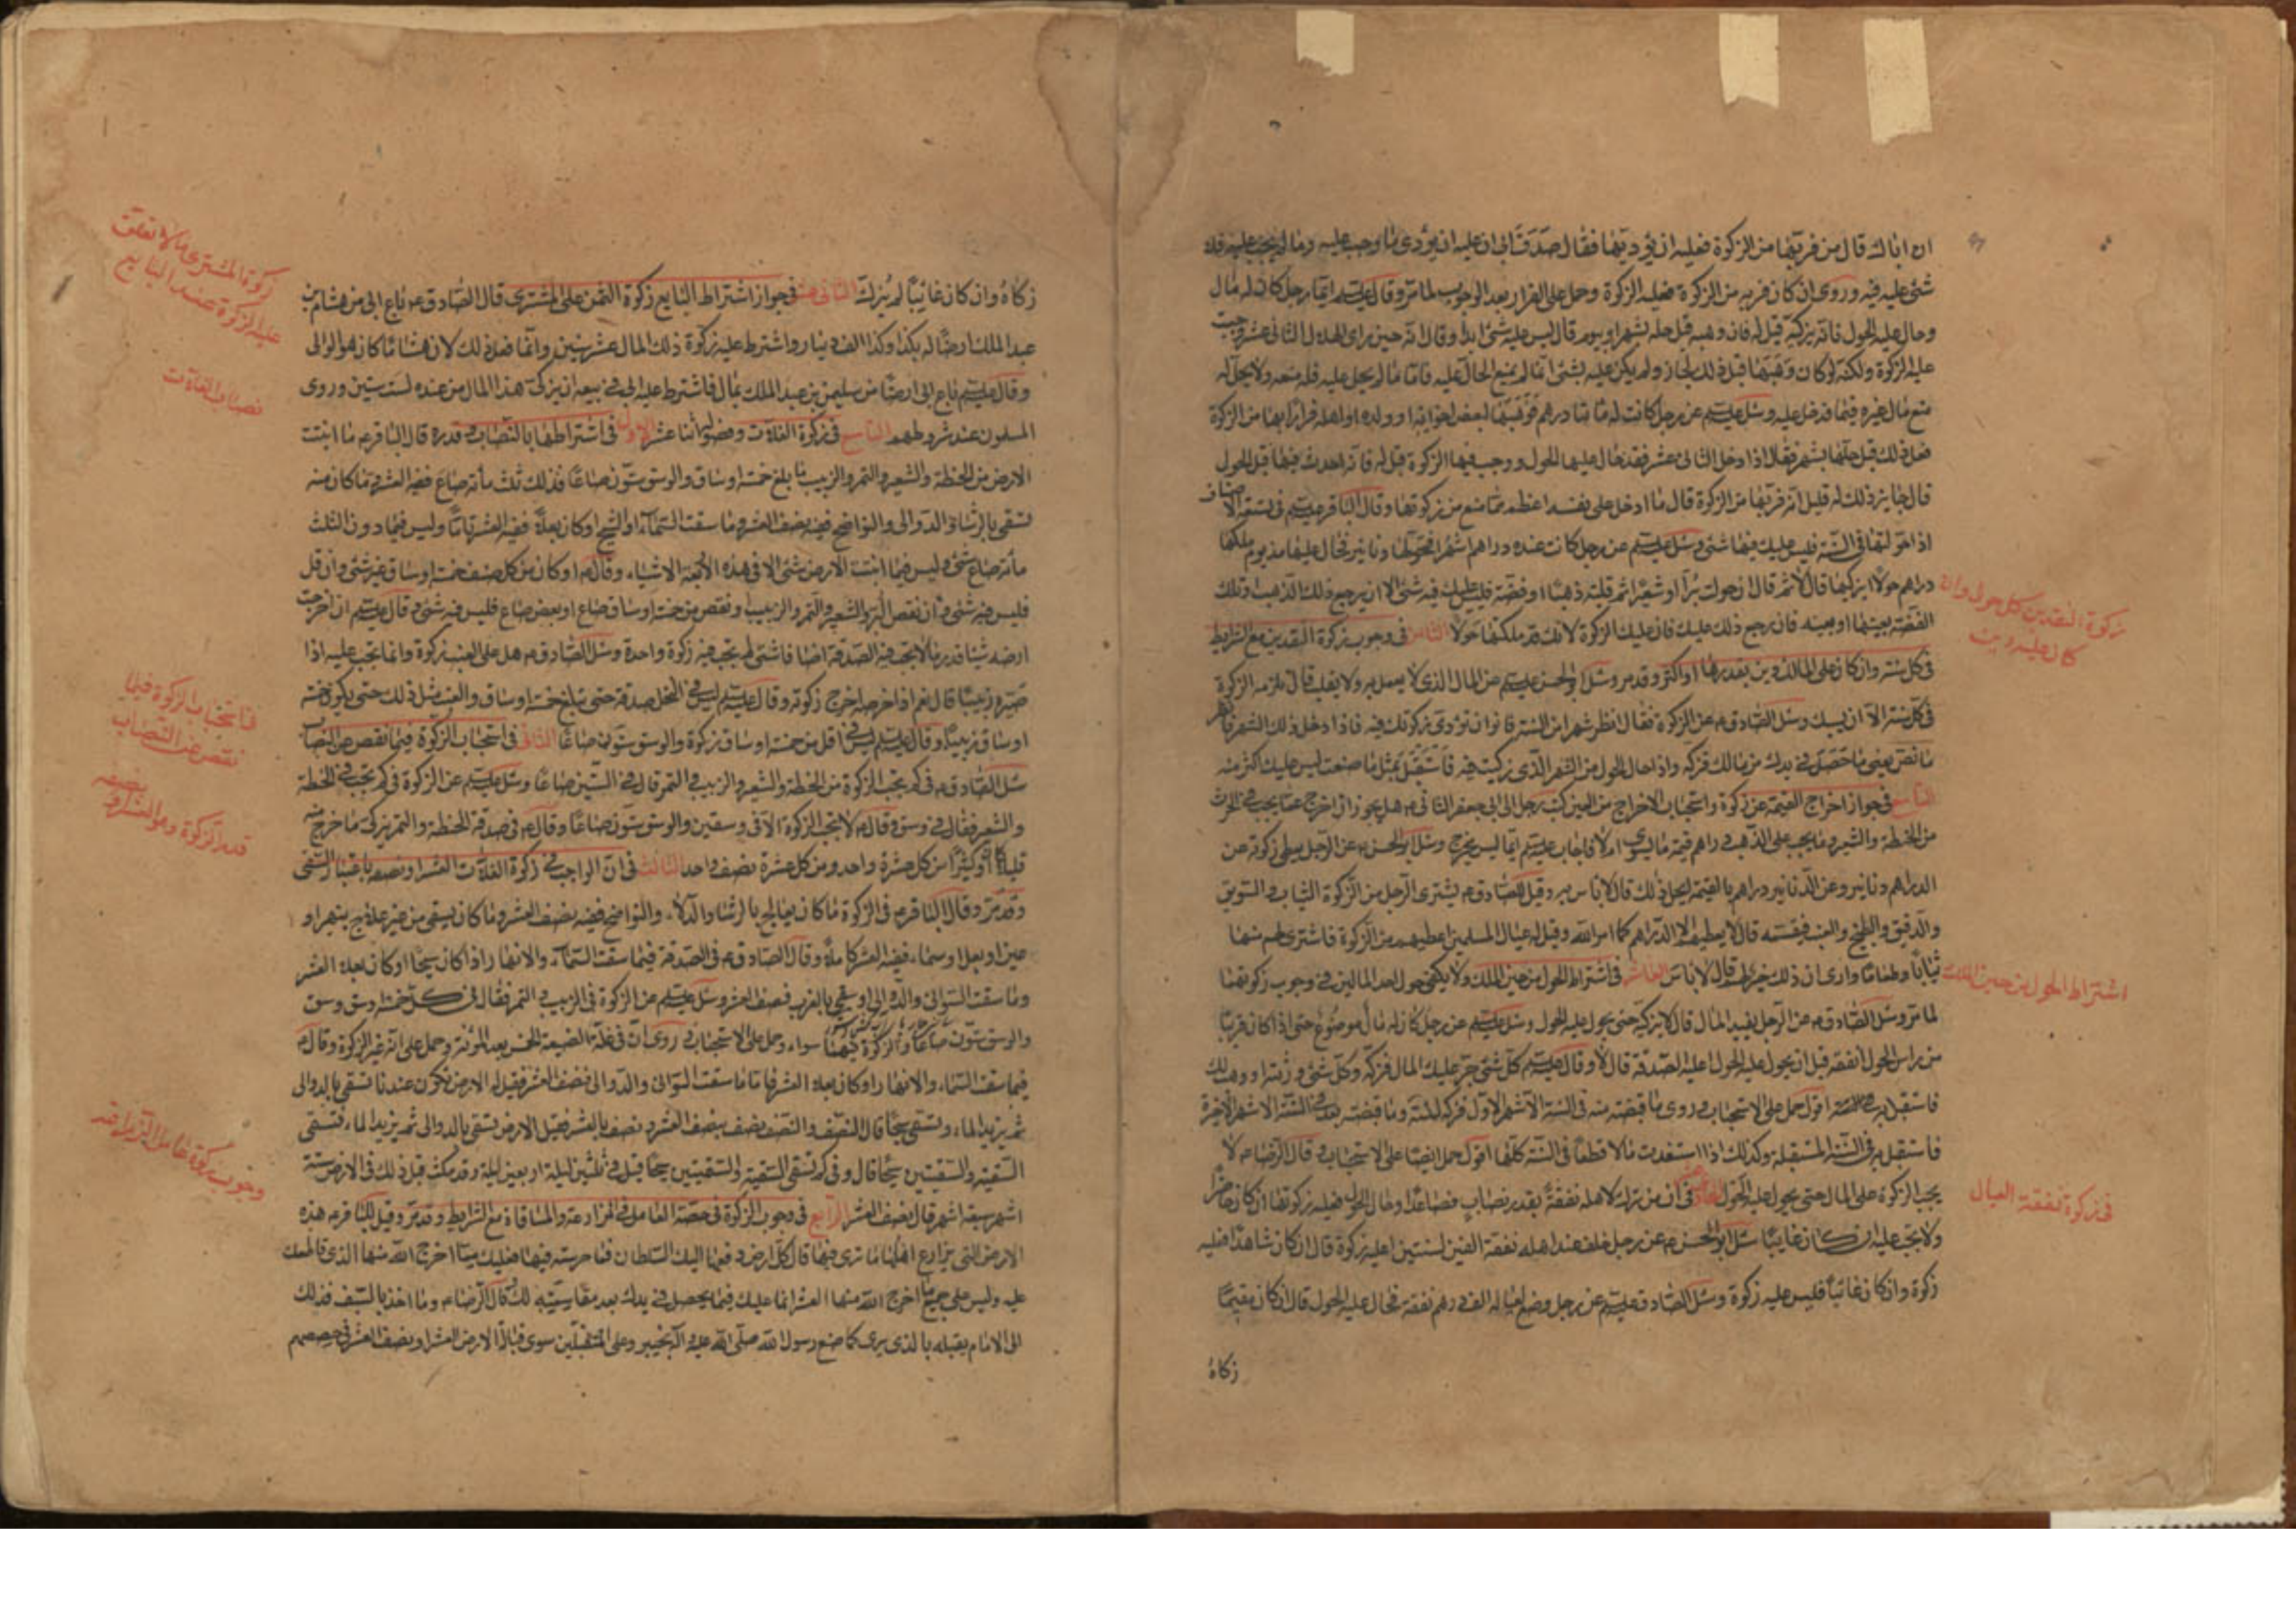 ان اباك قال من فر بها من الزكوة فعليه ان يؤديها فقال صدق ابى ان عليه ان يؤدى ما وجب عليه وما لم يجب عليه فلا
شئ عليه فيه وروى ان كان فر به من الزكوة فعليه الزكوة وحمل على الفرار بعد الوجوب لما مر وقال عليتم ايما رجل كان له مال
وحال عليه الحول فانه يزكيه قيل له فان وهبه قبل حله بشهر او بيوم قال ليس عليه شئ ابدا وقال انه حين راى الهلال الثانى عشر وجبت
عليه الزكوة ولكنه لو كان وهبها قبل ذلك لجاز ولم يكن عليه شئ انما لم يمنع الحال عليه فاما ما لم يحل عليه فله منعه ولا يحل له
منع مال غيره فيما قد حل عليه وسئل عليتم عن رجل كانت له مائتا درهم فوهبها لبعض اخوانه او ولده او اهله فرارا بها من الزكوة
فعل ذلك قبل حلها بشهر فقال اذا دخل الثانى عشر فقد حال عليها الحول ووجب فيها الزكوة قيل له فانه احدث فيها قبل الحول
قال جايز ذلك له قيل انه فر بها من الزكوة قال ما ادخل على نفسه اعظم مما منع من زكوتها وقال الباقر عليتم فى تسعة الاصناف
اذا حولتها فى السنة فليس عليك فيها شئ وسئل عليتم عن رجل كانت عنده دراهم اشهرا فحولها دنانير فحال عليها مذ يوم ملكها
دراهم حولا ايزكيها قال لا ثم قال ان حولت برا او شعيرا ثم قلبته ذهبا او فضة فليس عليك فيه شئ الا ان يرجع ذلك الذهب او تلك
الفضة بعينها او بعينه فان رجع ذلك عليك فان عليك الزكوة لانك قد ملكتها حولا الثامن فى وجوب زكوة النقدين مع الشرايط
فى كل سنة وان كان على المالك دين بقدرها او اكثر وقد مر وسئل ابو الحسن عليتم عن المال الذى لا يعمل به ولا يقلب قال تلزمه الزكوة
فى كل سنة الا ان يسبك وسئل الصادق م عن الزكوة فقال انظر شهرا من السنة فانو ان تؤدى زكوتك فيه فاذا دخل ذلك الشهر فانظر
ما نض يعنى ما حصل فى يدك من مالك فزكه واذا حال الحول من الشهر الذى زكيت فيه فاستقبل بمثل ما صنعت ليس عليك اكثر منه
التاسع فى جواز اخراج القيمة عن زكوة واستحباب الاخراج من العين كتب رجل الى ابى جعفر الثانى م هل يجوز ان اخرج عما يجب فى الحرث
من الحنطة والشعير وما يجب على الذهب دراهم قيمة ما يسوى ام لا فاجاب عليتم ايما تيسر يخرج وسئل ابو الحسن م عن الرجل يعطى زكوته عن
الدراهم دنانير وعن الدنانير دراهم بالقيمة ايحل ذلك قال لا باس به وقيل للصادق م يشترى الرجل من الزكوة الثياب والسويق
والدقيق والبطيخ والعنب فيقسمه قال لا يعطيهم الا الدراهم كما امر الله وقيل له عيال المسلمين اعطيهم من الزكوة فاشترى لهم منها
ثيابا وطعاما وارى ان ذلك خير لهم قال لا باس العاشر فى اشتراط الحول من حين الملك ولا يكفى حول احد المالين فى وجوب زكوتهما
لما مر وسئل الصادق م عن الرجل يفيد المال قال لا يزكيه حتى يحول عليه الحول وسئل عليتم عن رجل كان له مال موضوع حتى اذا كان قريبا
من راس الحول انفقه قبل ان يحول عليه الحول اعليه الصدقة قال لا وقال عليتم كل شئ جر عليك المال فزكه وكل شئ ورثته او وهب لك
فاستقبل به اقول حمل على الاستحباب وروى ما قبضته منه فى الستة الاشهر الاول فزكه لسنته وما قبضته بعد فى الستة الاشهر الاخيرة
فاستقبل به فى السنة المستقبلة وكذلك اذا استفدت مالا قطعا فى السنة كلها اقول حمل ايضا على الاستحباب وقال الرضا م لا
يجب الزكوة على المال حتى يحول عليه الحول الحادى عشر فى ان من ترك لاهله نفقة بقدر نصاب فصاعدا وحال الحول فعليه زكوتها ان كان حاضرا
ولا يجب عليه ان كان غايبا سئل ابو الحسن م عن رجل خلف عند اهله نفقة الفين لسنتين اعليه زكوة قال ان كان شاهدا فعليه
زكوة وان كان غائبا فليس عليه زكوة وسئل الصادق عليتم عن رجل وضع لعياله الف درهم نفقة فحال عليه الحول قال ان كان مقيما
زكاه
زكوة النقدين كل حول وان
كان عليه دين
اشتراط الحول من حين الملك
فى زكوة نفقة العيال
زكاه وان كان غائبا لم يزك الثانى عشر فى جواز اشتراط البايع زكوة الثمن على المشترى قال الصادق م باع ابى من هشام بن
عبد الملك ارضا له بكذا وكذا الف دينار واشترط عليه زكوة ذلك المال عشر سنين وانما فعل ذلك لان هشاما كان هو الوالى
وقال عليتم باع ابى ارضا من سليمن بن عبد الملك بمال فاشترط عليه ابى فى بيعه ان يزكى هذا المال من عنده لست سنين وروى
المسلمون عند شروطهم التاسع فى زكوة الغلات وفصوله اثنا عشر الاول فى اشتراطها بالنصاب وقدره قال الباقر م ما انبتت
الارض من الحنطة والشعير والتمر والزبيب ما بلغ خمسة اوساق والوسق ستون صاعا فذلك ثلث مأته صاع ففيه العشر وما كان منه
يسقى بالرشاء والدوالى والنواضح ففيه نصف العشر وما سقت السمآء او السيح او كان بعلا ففيه العشر تاما وليس فيما دون الثلث
مأته صاع شئ وليس فيما انبتت الارض شئ الا فى هذه الاربعة الاشياء وقال م لو كان من كل صنف خمسة اوساق غير شئ وان قل
فليس فيه شئ وان نقص البر والشعير والتمر والزبيب او نقص من خمسة اوساق صاع او بعض صاع فليس فيه شئ وقال عليتم ان اخرجت
ارضه شيئا قدر ما لا يجب فيه الصدقة اصنافا شتى لم تجب فيه زكوة واحدة وسئل الصادق م هل على العنب زكوة وانما تجب عليه اذا
صيره زبيبا قال نعم اذا خرصه اخرج زكوته وقال عليتم ليس فى النخل صدقة حتى يبلغ خمسة اوساق والعنب مثل ذلك حتى يكون خمسة
اوساق زبيبا وقال عليتم ليس فى اقل من خمسة اوساق زكوة والوسق ستون صاعا الثانى فى استحباب الزكوة فيما نقص عن النصاب
سئل الصادق م فى كم يجب الزكوة من الحنطة والشعير والزبيب والتمر قال فى ستين صاعا وسئل عليتم عن الزكوة فى كم تجب فى الحنطة
والشعير فقال فى وسق وقال م لا يجب الزكوة الا فى وسقين والوسق ستون صاعا وقال م فى صدقة الحنطة والتمر يزكى ما خرج منه
قليلا او كثيرا من كل عشرة واحد ومن كل عشرة نصف واحد الثالث فى ان الواجب فى زكوة الغلات العشر او نصفه باعتبار السقى
وقد مر وقال الباقر م فى الزكوة ما كان يعالج بالرشاء والدلاء والنواضح ففيه نصف العشر وما كان يسقى من غير علاج بنهر او
عين او بعل او سماء ففيه العشر كاملا وقال الصادق م فى الصدقة فيما سقت السمآء والانهار اذا كان سيحا او كان بعلا العشر
وما سقت السوانى والدوالى او سقى بالغرب فنصف العشر وسئل عليتم عن الزكوة فى الزبيب والتمر فقال فى كل خمسة اوسق وسق
والوسق ستون صاعا والزكوة فيهما سواء وحمل على الاستحباب وروى ان فى غلة الضيعة الخمس بعد المؤنة وحمل على انه غير الزكوة وقال م
فيما سقت السماء والانهار او كان بعلا العشر فاما ما سقت السوانى والدوالى فنصف العشر فقيل له الارض تكون عندنا تسقى بالدوالى
ثم يزيد الماء وتسقى سيحا قال النصف والنصف نصف بنصف العشر ونصف بالعشر فقيل الارض تسقى بالدوالى ثم يزيد الماء فتسقى
السقية والسقيتين سيحا قال وفى كم تسقى السقية والسقيتين سيحا قيل فى ثلثين ليلة اربعين ليلة وقد مكث قبل ذلك فى الارض ستة
اشهر سبعة اشهر قال نصف العشر الرابع فى وجوب الزكوة فى حصة العامل فى المزارعة والمساقاة مع الشرايط وقد مر وقيل للباقر م هذه
الارض التى يزارع اهلها ما ترى فيها قال كل ارض دفعها اليك السلطان فما حرثته فيها فعليك مما اخرج الله منها الذى قاطعك
عليه وليس على جميع ما اخرج الله منها العشر انما عليك فيما يحصل فى يدك بعد مقاسمته لك وقال الرضا م وما اخذ بالسيف فذلك
الى الامام يقبله بالذى يرى كما صنع رسول الله صلى الله عليه وآله بخيبر وعلى المتقبلين سوى قبالة الارض العشر او نصف العشر فى حصصهم
زكوة المشترى مالا تعلقت
عليه الزكوة عند البايع
نصاب الغلات
استحباب الزكوة فيما
نقص عن النصاب
قدر الزكوة وهو العشر او نصفه
وجوب زكوة عامل المزارعة